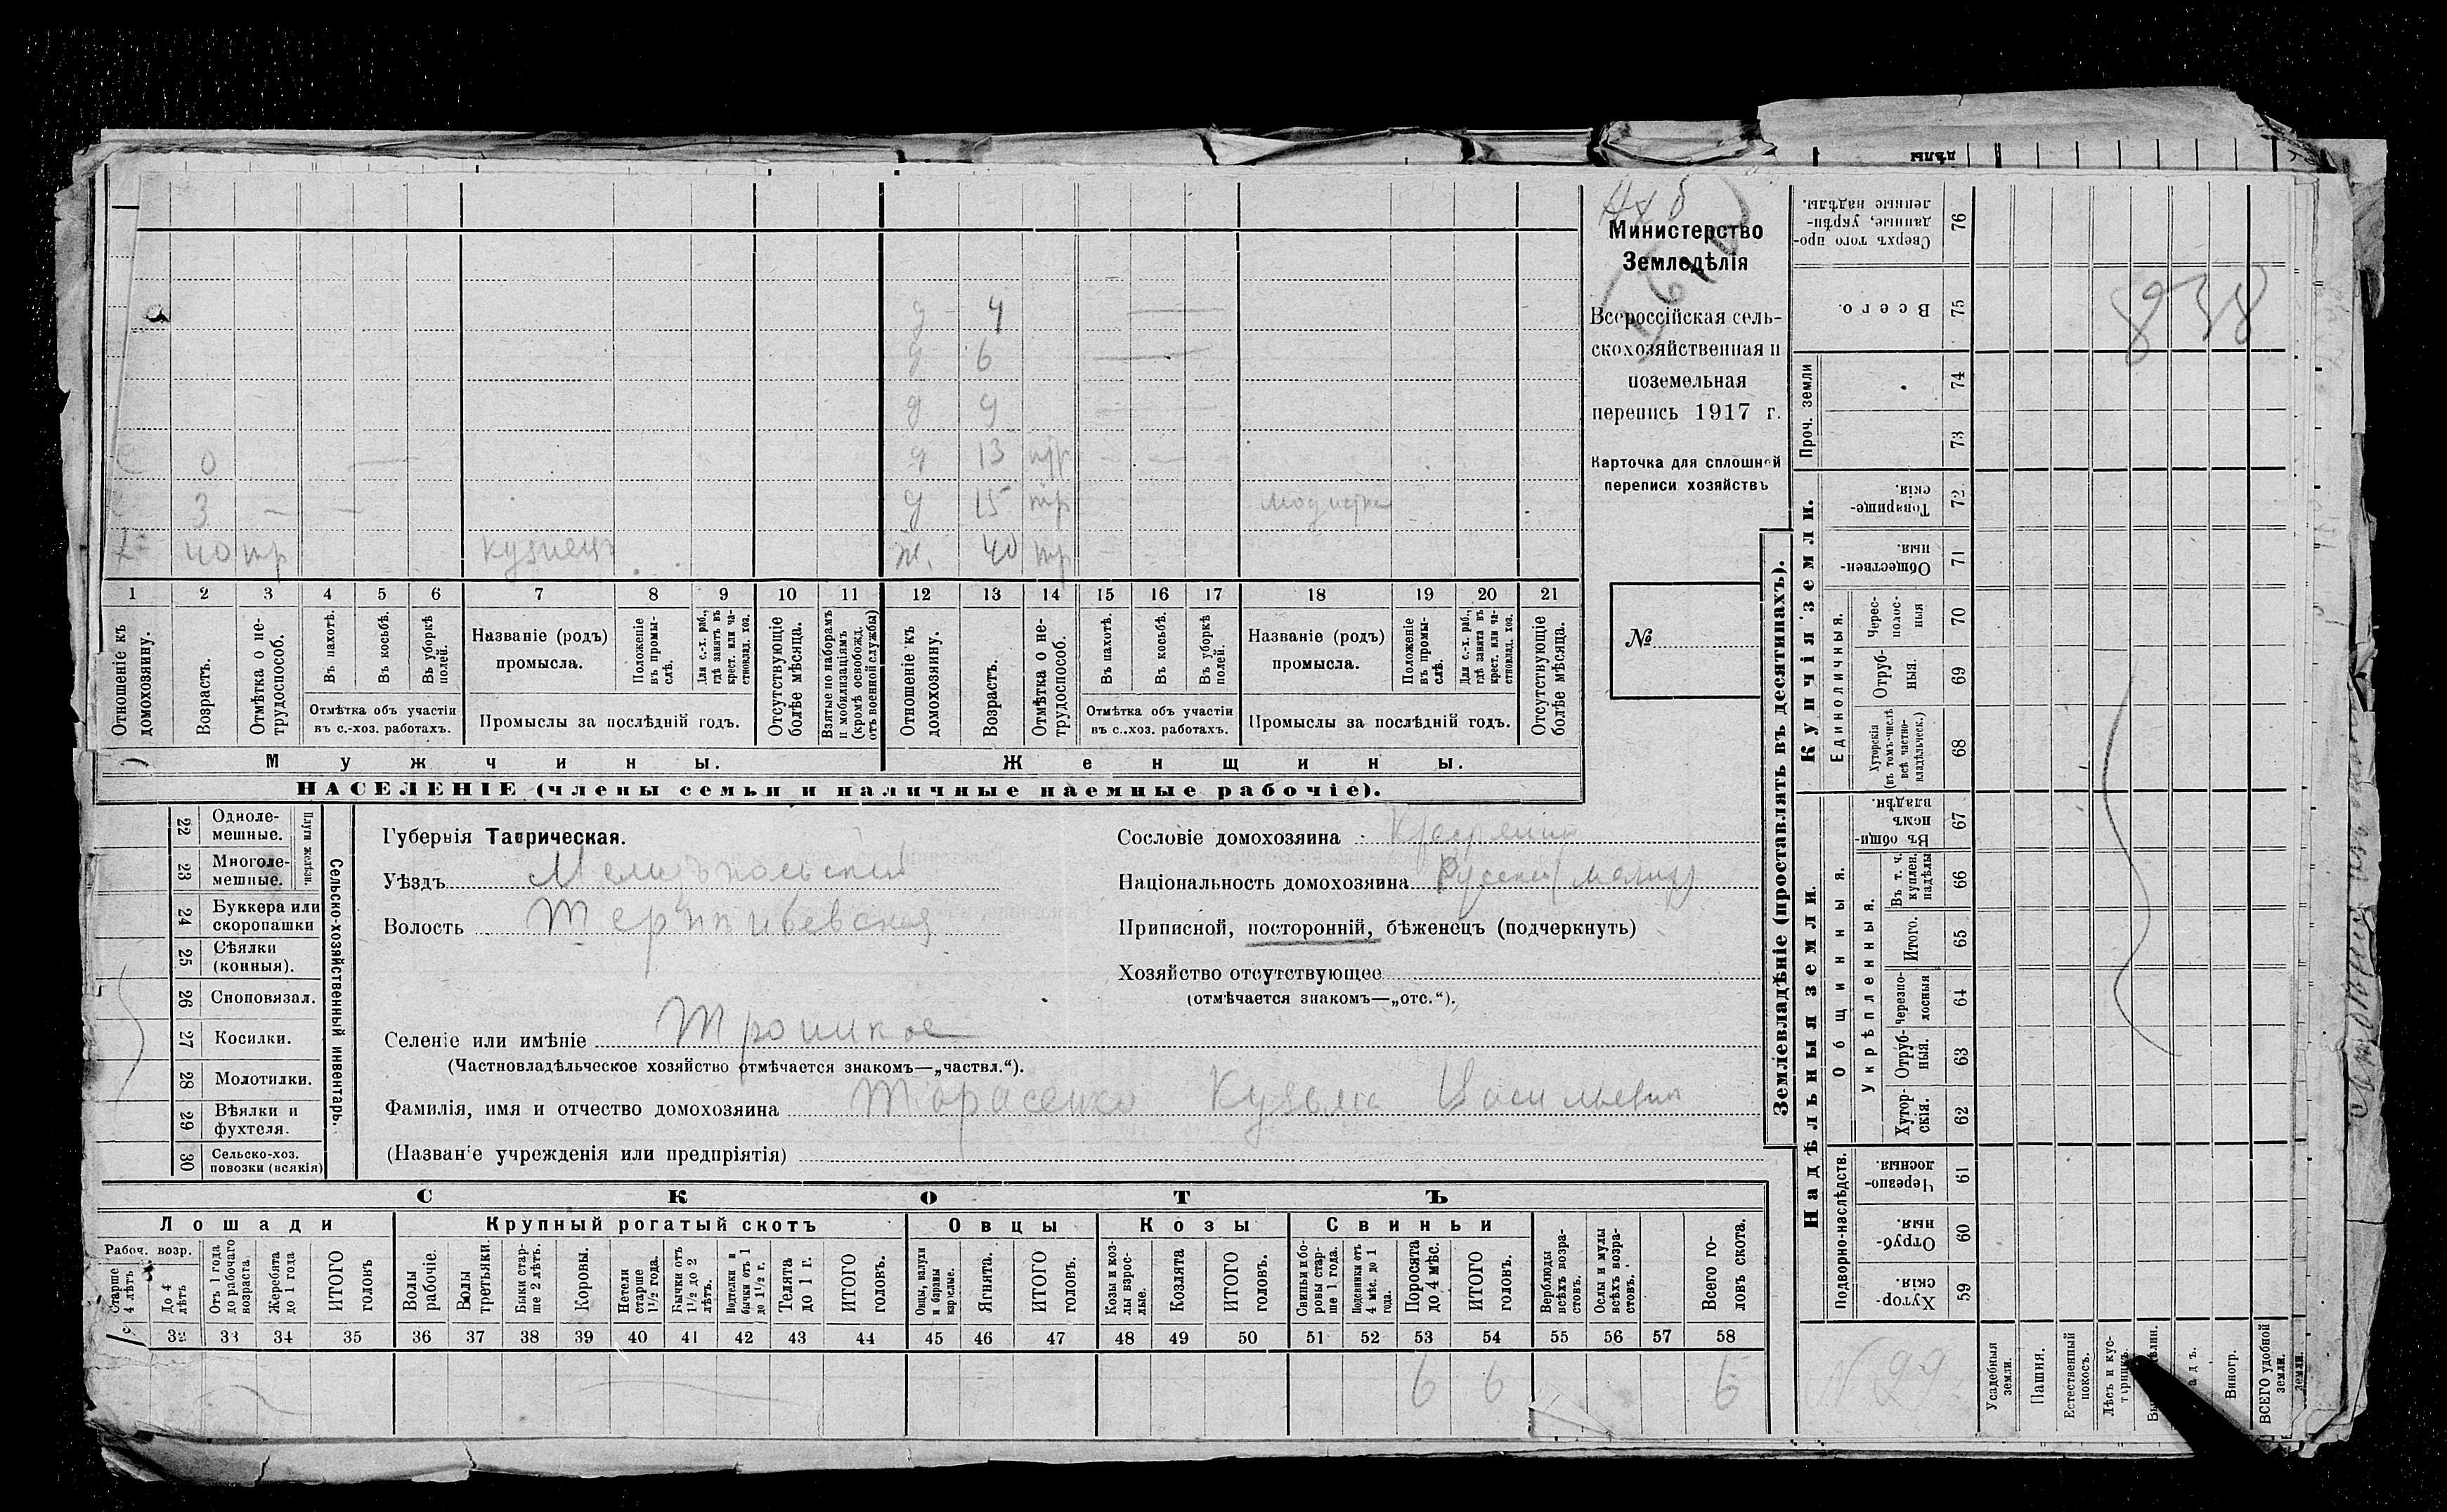 д 4
д 6
д 9
0 д 13
3 д 15 тр модистка
40 тр кузнецъ ж. 40 тр
1 2 3 4 5 6 7 8 9 10 11 12 13 14 15 16 17 18 19 20 21
Отношеніе къ домохозяину.
Возрастъ.
Отмѣтка о не-трудоспособ.
Въ пахотѣ.
Въ косьбѣ.
Въ уборкѣ полей.
Отмѣтка объ участіи
въ с.-хоз. работахъ.
Названіе (родъ)
промысла.
Положеніе въ промы-слѣ.
Для с.-х. раб., гдѣ занятъ въ крест. или ча-стновлад. хоз.
Промыслы за послѣдній годъ.
Отсутствующіе болѣе мѣсяца.
Взятые по наборамъ и мобилизаціямъ (кромѣ освобожд. отъ военной службы)
Отношеніе къ домохозяину.
Возрастъ.
Отмѣтка о не-трудоспособ.
Въ пахотѣ.
Въ косьбѣ.
Въ уборкѣ полей.
Отмѣтка объ участіи
въ с.-хоз. работахъ.
Названіе (родъ)
промысла.
Положеніе въ промы-слѣ.
Для с.-х. раб., гдѣ занята въ крест. или ча-стновлад. хоз.
Промыслы за послѣдній годъ.
Отсутствующіе болѣе мѣсяца.
Мужчины. Женщины.
НАСЕЛЕНІЕ (члены семьи и наличные наемные рабочіе).
Министерство
Земледѣлія
Всероссійская сель-
скохозяйственная и
поземельная
перепись 1917 г.
Карточка для сплошной
переписи хозяйствъ
№
22 Одноле-мешные.
23 Многоле-мешные.
Плуги желѣзн.
24 Буккера или скоропашки
25 Сѣялки (конныя).
26 Сноповязал.
27 Косилки.
28 Молотилки.
29 Вѣялки и фухтеля.
30 Сельско-хоз. повозки (всякія)
Сельско-хозяйственный инвентарь.
Губернія Таврическая.
Уѣздъ Мелитопольский
Волость Терпѣньевская
Селеніе или имѣніе Троицкое
(Частновладѣльческое хозяйство отмѣчается знакомъ—„частвл.“).
Фамилія, имя и отчество домохозяина Тарасенко Кузьма Васильевич
(Названіе учрежденія или предпріятія)
Сословіе домохозяина Крестьянин
Національность домохозяина Русский
Приписной, посторонній, бѣженецъ (подчеркнуть)
Хозяйство отсутствующее
(отмѣчается знакомъ—„отс.“).
СКОТЪ
Лошади Крупный рогатый скотъ Овцы Козы Свиньи
Рабоч. возр.
Старше 4 лѣтъ
До 4 лѣтъ
Отъ 1 года до рабочаго возраста
Жеребята до 1 года
ИТОГО головъ
Волы рабочіе.
Волы третьяки.
Быки стар-ше 2 лѣтъ.
Коровы.
Нетели старше 1½ года.
Бычки отъ 1½ до 2 лѣтъ.
Подтелки и бычки отъ 1 до 1½ г.
Телята до 1 г.
ИТОГО головъ.
Овцы, валухи и бараны взрослые.
Ягнята.
ИТОГО головъ.
Козы и коз-лы взрос-лые.
Козлята
ИТОГО головъ.
Свиньи и бо-ровы стар-ше 1 года.
Подсвинки отъ 4 мѣс. до 1 года.
Поросята до 4 мѣс.
ИТОГО головъ.
Верблюды всѣхъ возра-стовъ.
Ослы и мулы всѣхъ возра-стовъ.
Всего го-ловъ скота.
32 33 34 35 36 37 38 39 40 41 42 43 44 45 46 47 48 49 50 51 52 53 54 55 56 57 58
6 6 6
Землевладѣніе (проставлять въ десятинахъ).
Надѣльныя земли. Купчія земли.
Сверхъ того про-данные, укрѣп-ленные надѣлы. 76
Всего. 75
Проч. земли 74 73
Товарище-скія. 72
Обществен-ныя. 71
Единоличныя.
Черес-полос-ныя 70
Отруб-ныя. 69
Хуторскія (въ томъ числѣ всѣ частно-владѣльческ.) 68
Общинныя.
Въ общи-номъ владѣн. 67
Укрѣпленныя.
Въ т. ч. куплен. надѣлы 66
Итого. 65
Черезпо-лосныя 64
Отруб-ныя. 63
Хутор-скія. 62
Подворно-наслѣдств.
Черезпо-лосныя. 61
Отруб-ныя. 60
Хутор-скія. 59
838
Усадебныя земли.
Пашня.
Естественный покосъ.
Лѣсъ и кус-тарникъ.
Виногр.
ВСЕГО удобной земли.